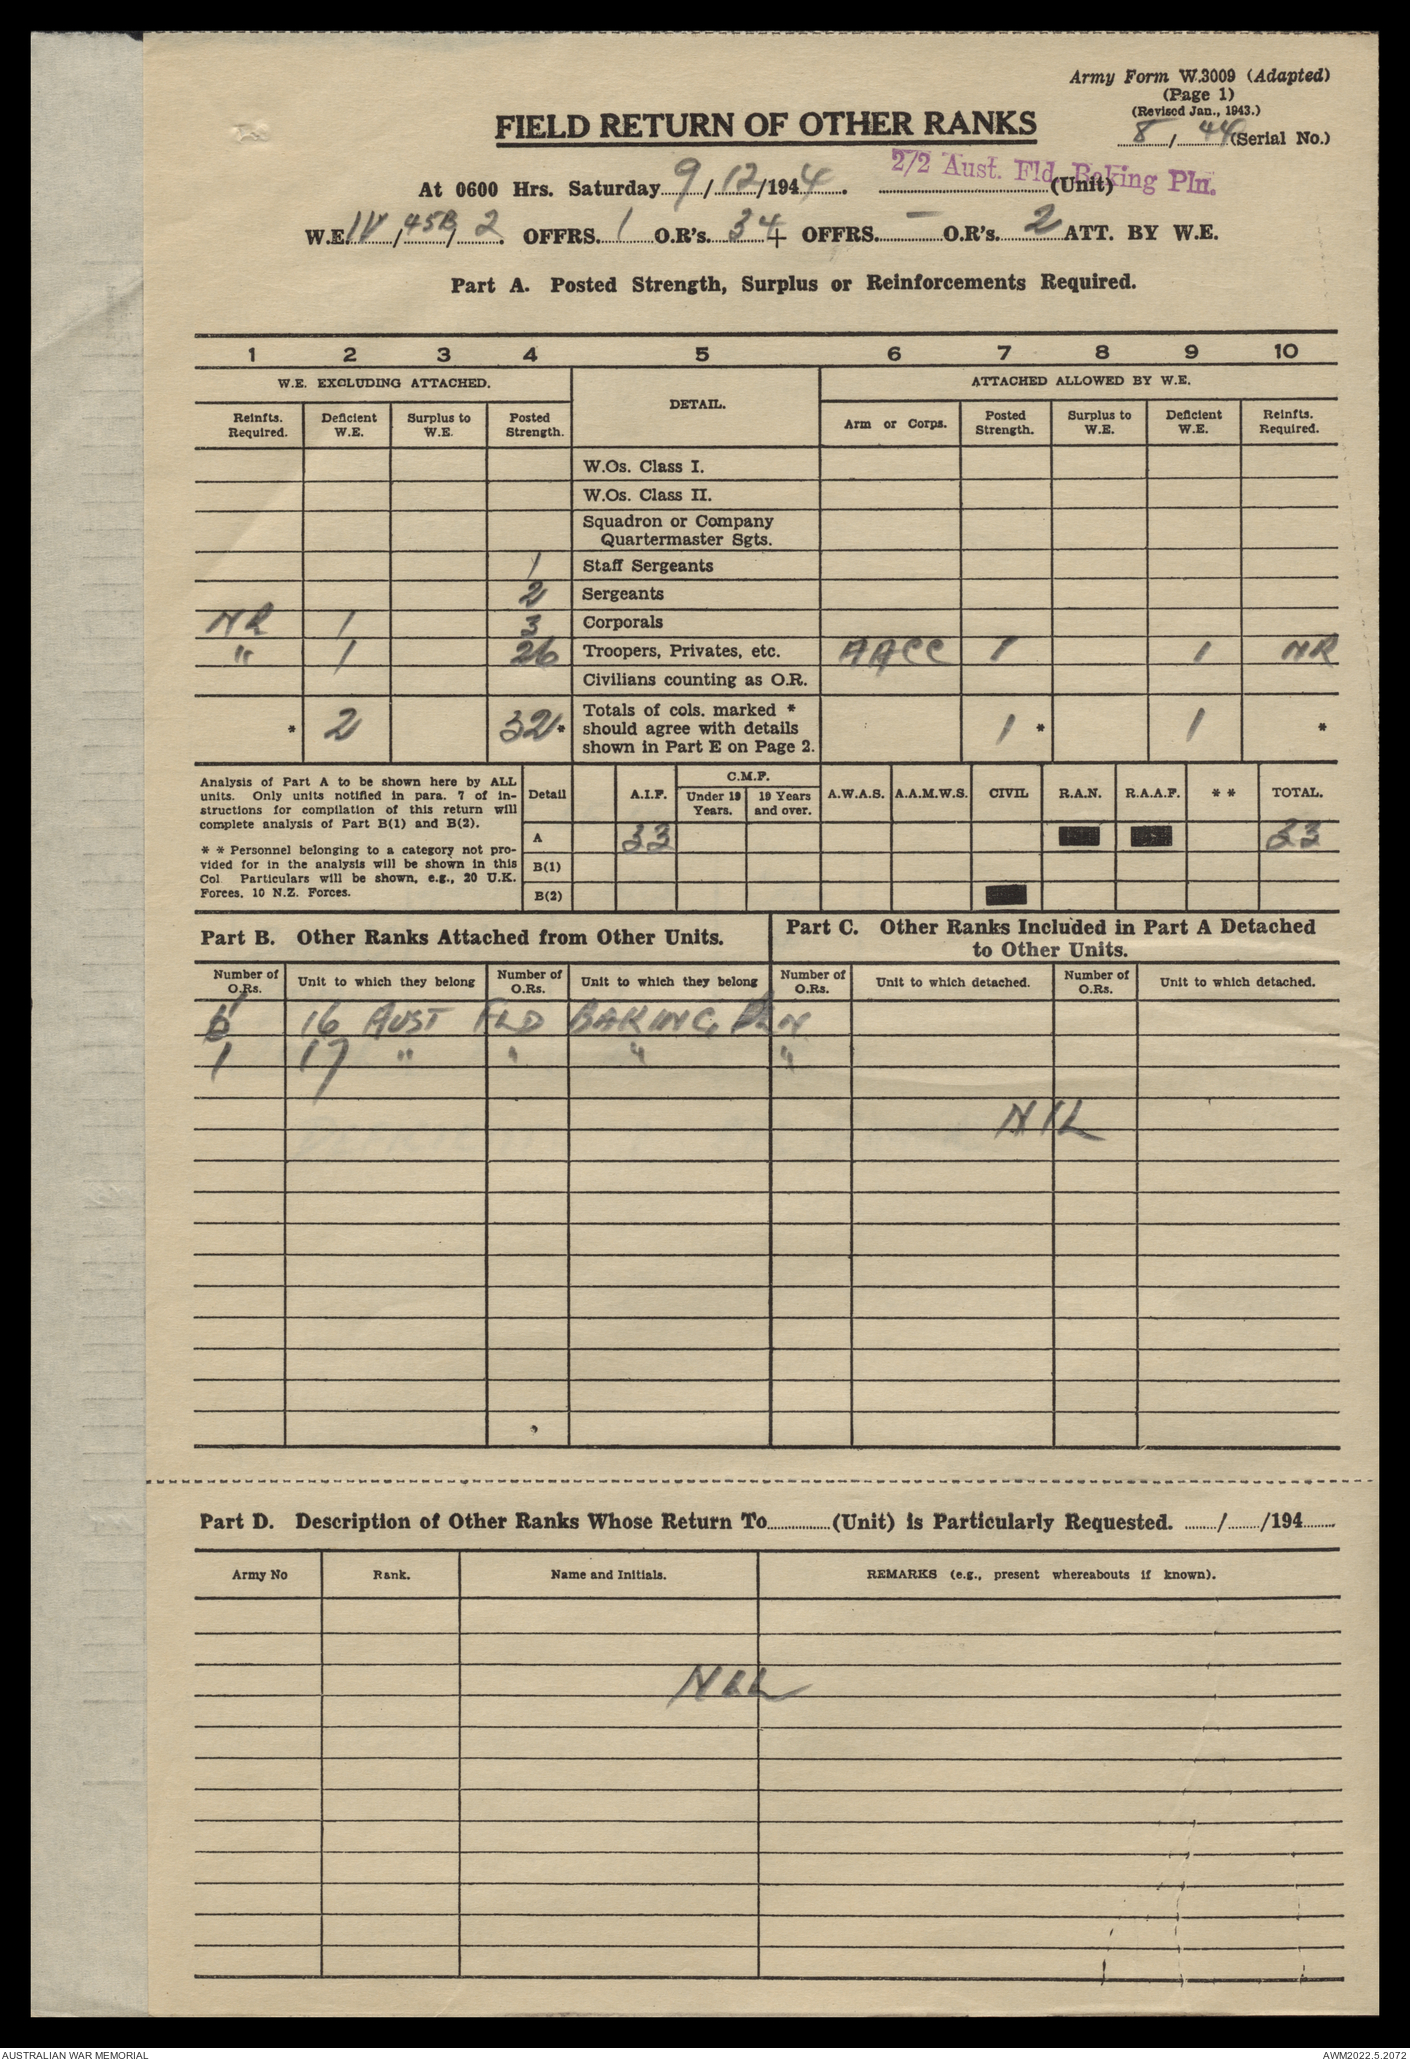 Army Form W.3009 (Adapted)
(Page 1)
(Revised Jan., 1943.)
8 / 44 (Serial No.)
FIELD RETURN OF OTHER RANKS
At 0600 Hrs. Saturday 9/12/1944. 2/2 Aust. Fld. Baking Pln. (Unit)
W.E. IV/45B/2. OFFRS. 1 O.R's. 34 + OFFRS. — O.R's. 2 ATT. BY W.E.
Part A. Posted Strength, Surplus or Reinforcements Required.
1 2 3 4 5 6 7 8 9 10
W.E. EXCLUDING ATTACHED. DETAIL. ATTACHED ALLOWED BY W.E.
Reinfts. Required. Deficient W.E. Surplus to W.E. Posted Strength. Arm or Corps. Posted Strength. Surplus to W.E. Deficient W.E. Reinfts. Required.
W.Os. Class I.
W.Os. Class II.
Squadron or Company
Quartermaster Sgts.
1 Staff Sergeants
2 Sergeants
NR 1 3 Corporals
" 1 26 Troopers, Privates, etc. AACC 1 1 NR
Civilians counting as O.R.
* 2 32* Totals of cols. marked * should agree with details shown in Part E on Page 2. 1 * 1 *
Analysis of Part A to be shown here by ALL
units. Only units notified in para. 7 of in-
structions for compilation of this return will
complete analysis of Part B(1) and B(2).
* * Personnel belonging to a category not pro-
vided for in the analysis will be shown in this
Col Particulars will be shown, e.g., 20 U.K.
Forces. 10 N.Z. Forces.
C.M.F.
Detail A.I.F. Under 19 Years. 19 Years and over. A.W.A.S. A.A.M.W.S. CIVIL R.A.N. R.A.A.F. * * TOTAL.
A 33 33
B(1)
B(2)
Part B. Other Ranks Attached from Other Units.
Part C. Other Ranks Included in Part A Detached
to Other Units.
Number of O.Rs. Unit to which they belong Number of O.Rs. Unit to which they belong Number of O.Rs. Unit to which detached. Number of O.Rs. Unit to which detached.
16 AUST FLD BAKING PLN
1 17 " " " "
NIL
Part D. Description of Other Ranks Whose Return To (Unit) is Particularly Requested. / /194
Army No Rank. Name and Initials. REMARKS (e.g., present whereabouts if known).
NIL
AUSTRALIAN WAR MEMORIAL
AWM2022.5.2072